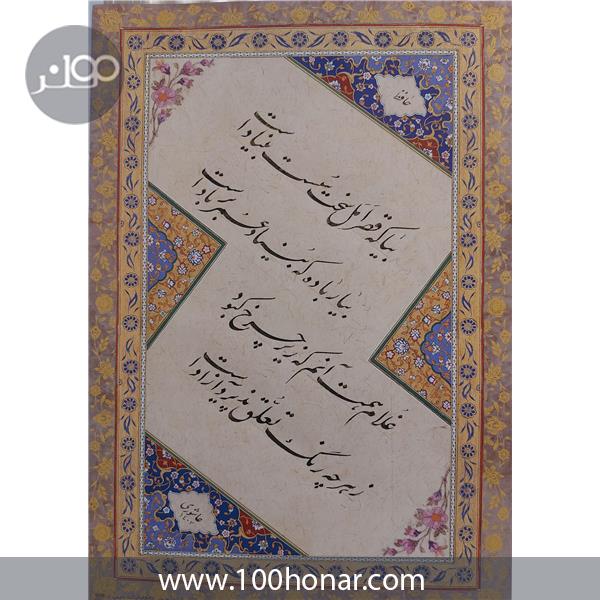 حافظ
بیا که قصر امل سخت سست بنیادست
بیار باده که بنیاد عمر بر بادست
غلام همت آنم که زیر چرخ کبود
ز هر چه رنگ تعلق پذیرد آزادست
www.100honar.com